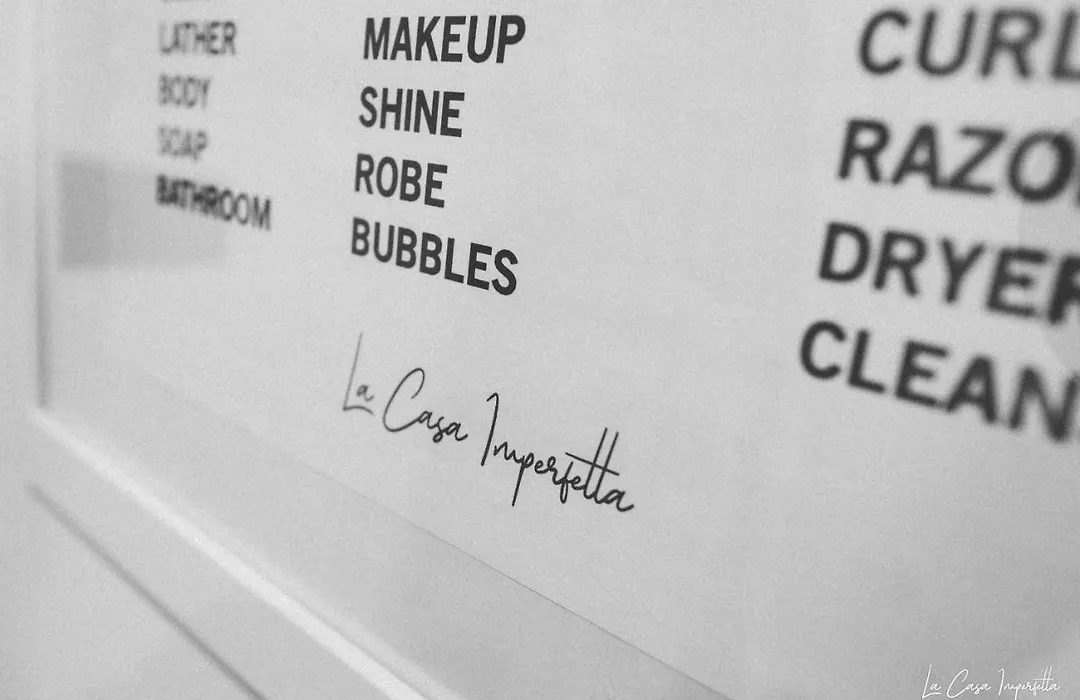 LATHER
BODY
SOAP
BATHROOM
MAKEUP
SHINE
ROBE
BUBBLES
CURL
RAZO
DRYER
CLEAN
La Casa Imperfetta
La Casa Imperfetta